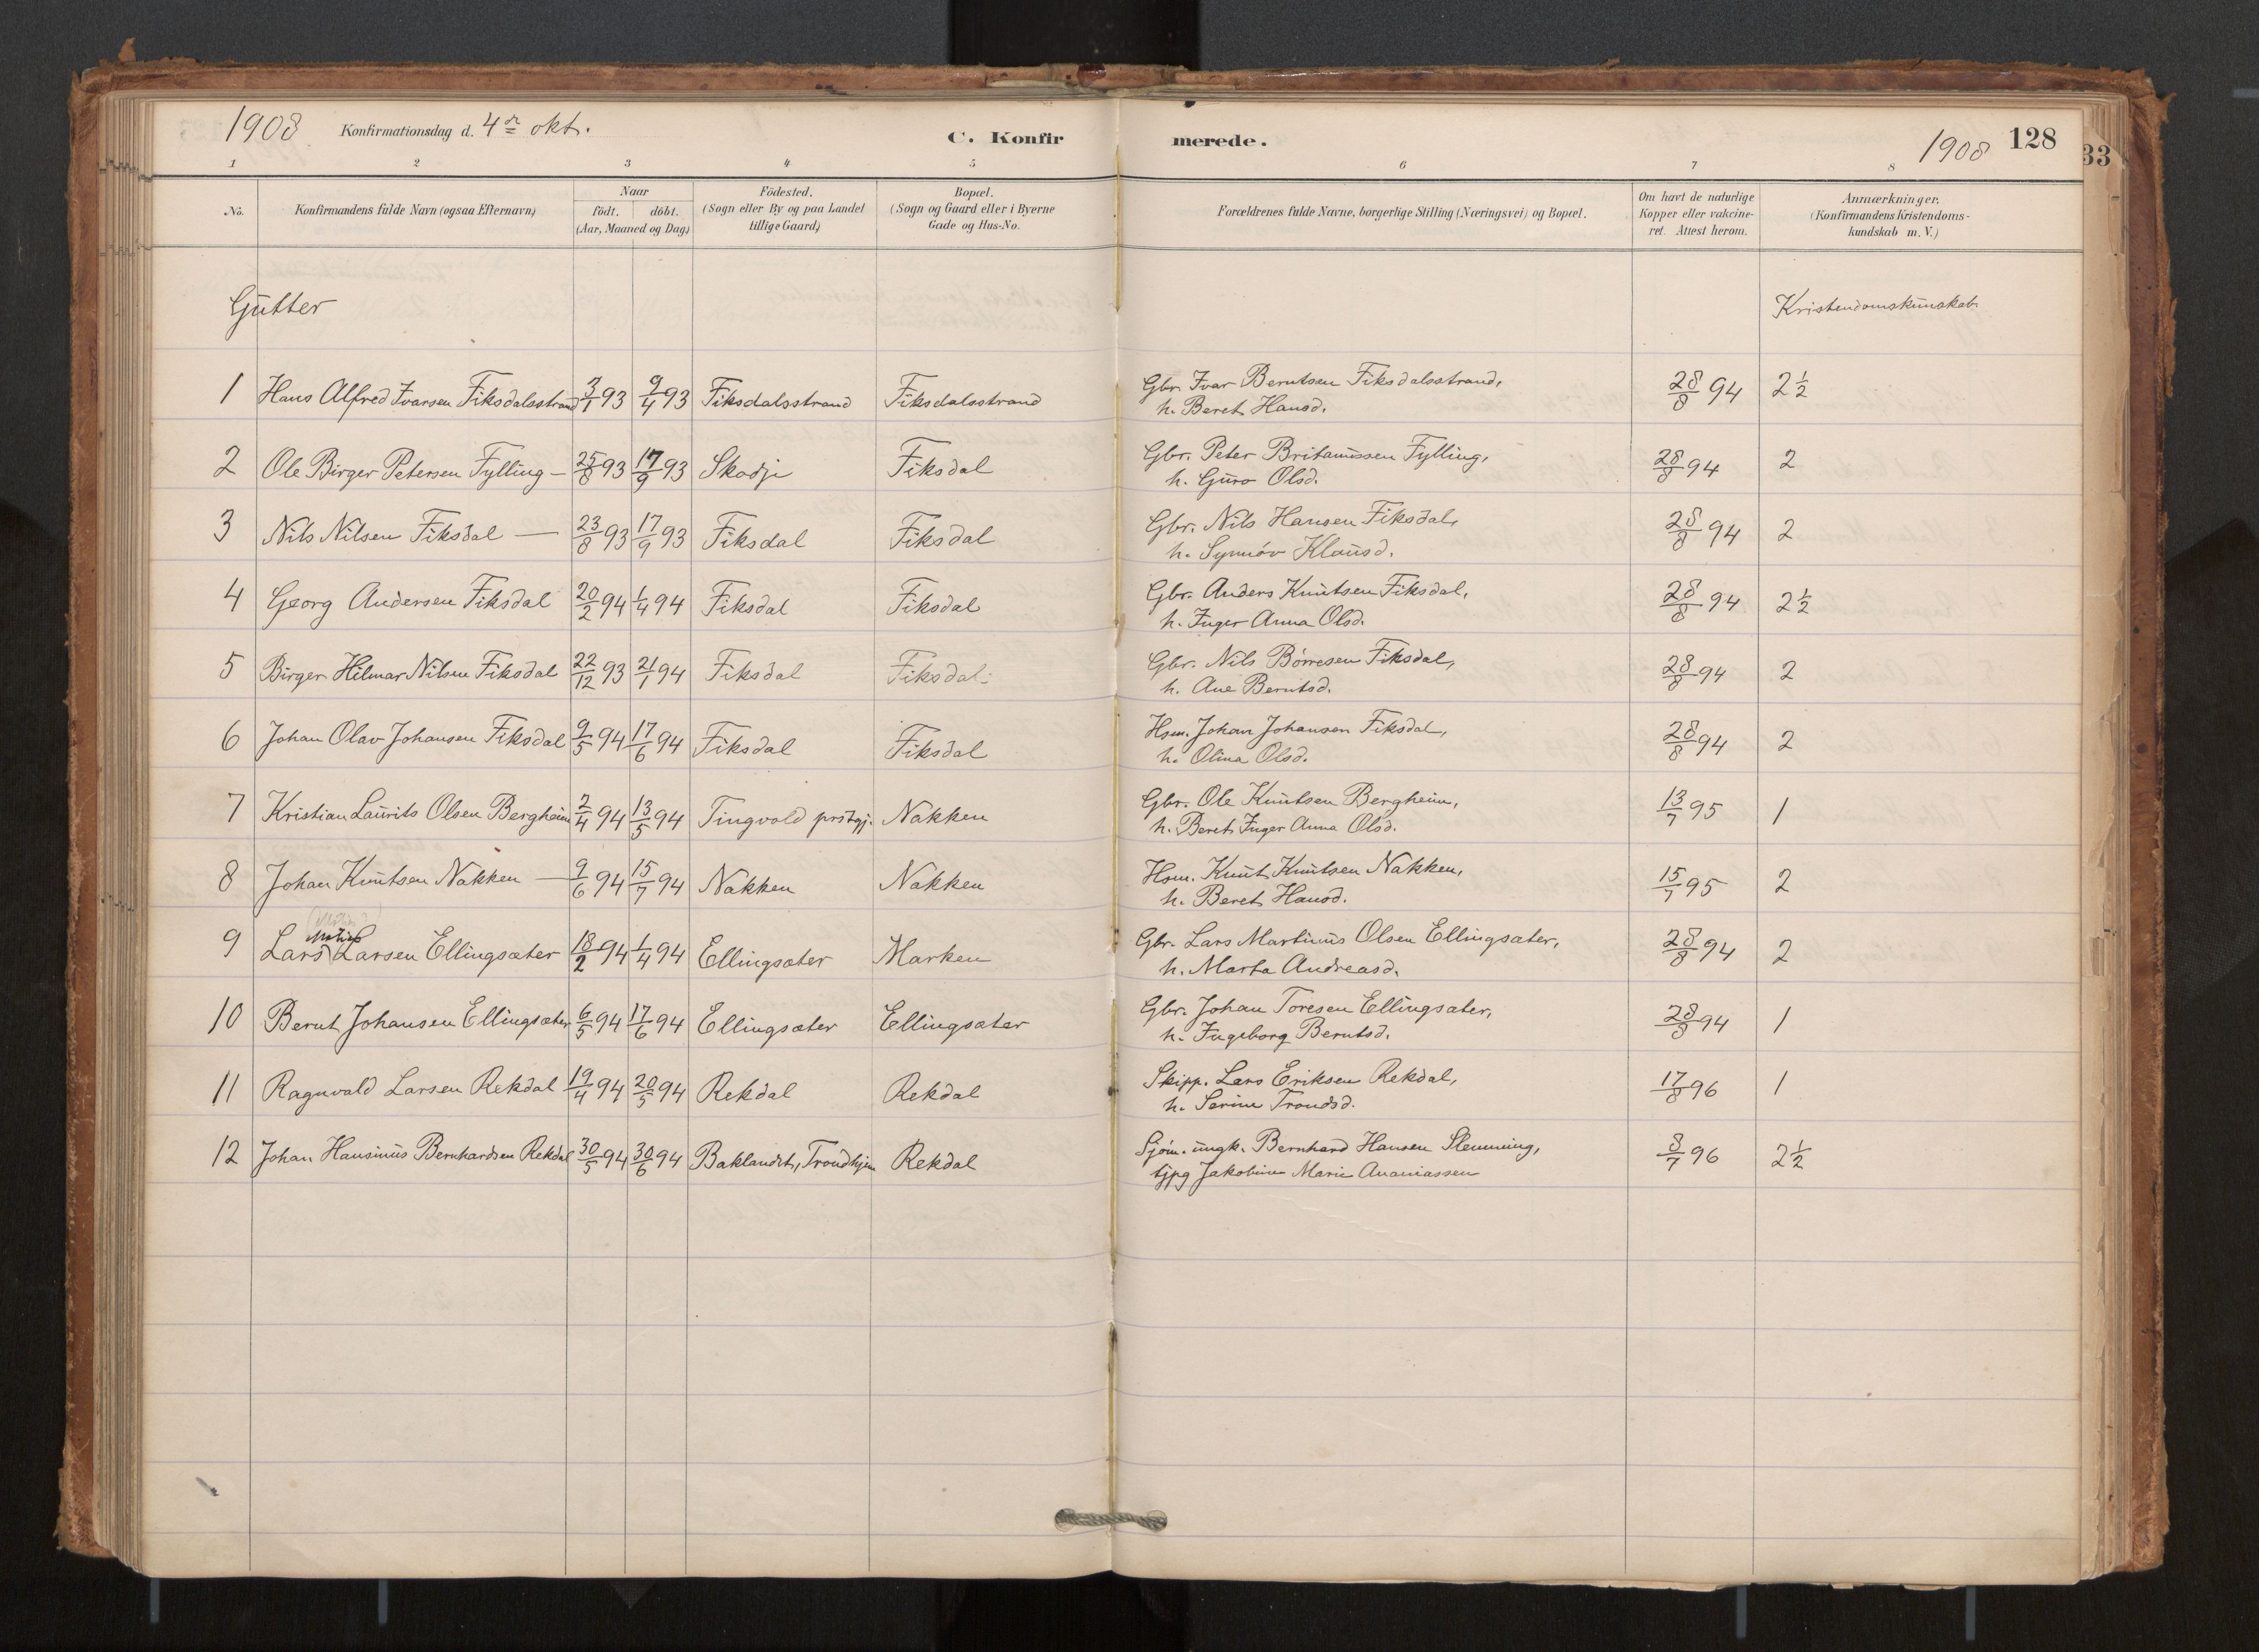 1908 Konfirmationsdag d. 4de okt. C. Konfirmerede. 1908 128
33
1 2 3 4 5 6 7 8
No. Konfirmandens fulde Navn (ogsaa Efternavn) Naar födt. döbt. (Aar, Maaned og Dag) Födested. (Sogn eller By og paa Landet tillige Gaard) Bopæl. (Sogn og Gaard eller i Byerne Gade og Hus-No. Forældrenes fulde Navne, borgerlige Stilling (Næringsvei) og Bopæl. Om havt de naturlige Kopper eller vakcineret. Attest herom. Anmærkninger. (Konfirmandens Kristendomskundskab m. V.)
Gutter Kristendomskunskab.
1 Hans Alfred Ivarsen Fiksdalsstrand 3/1 93 9/4 93 Fiksdalsstrand Fiksdalsstrand Gbr. Ivar Berntsen Fiksdalsstrand, 28/8 94 2 1/2
h. Beret Hansd.
2 Ole Birger Petersen Fylling — 25/8 93 17/9 93 Skodje Fiksdal Gbr. Peter Britanussen Fylling, 28/8 94 2
h. Guro Olsd.
3 Nils Nilsen Fiksdal — 23/8 93 17/9 93 Fiksdal Fiksdal Gbr. Nils Hansen Fiksdal, 28/8 94 2
h. Synnöv Klausd.
4 Georg Andersen Fiksdal 20/2 94 1/4 94 Fiksdal Fiksdal Gbr. Anders Knutsen Fiksdal, 28/8 94 2 1/2
h. Inger Anna Olsd.
5 Birger Hilmar Nilsen Fiksdal 22/12 93 21/1 94 Fiksdal Fiksdal. Gbr. Nils Börresen Fiksdal, 28/8 94 2
h. Ane Berntsd.
6 Johan Olav Johansen Fiksdal 9/5 94 17/6 94 Fiksdal Fiksdal Hsm. Johan Johansen Fiksdal, 28/8 94 2
h. Olina Olsd.
7 Kristian Laurits Olsen Bergheim 2/4 94 13/5 94 Tingvold prstgj. Nakken Gbr. Ole Knutsen Bergheim, 13/7 95 1
h. Beret Inger Anna Olsd.
8 Johan Knutsen Nakken — 9/6 94 15/7 94 Nakken Nakken Hsm. Knut Knutsen Nakken, 15/7 95 2
h. Beret Hansd.
9 Lars Larsen Ellingsæter 18/2 94 1/4 94 Ellingsæter Marken Gbr. Lars Martinus Olsen Ellingsæter, 28/8 94 2
h. Marta Andreasd.
10 Bernt Johansen Ellingsæter 6/5 94 17/6 94 Ellingsæter Ellingsæter Gbr. Johan Toresen Ellingsæter, 28/8 94 1
h. Ingeborg Berntsd.
11 Ragnvald Larsen Rekdal 19/4 94 20/5 94 Rekdal Rekdal Skipp. Lars Eriksen Rekdal, 17/8 96 1
h. Serine Trondsd.
12 Johan Hansinus Bernhardsen Rekdal 30/5 94 30/6 94 Baklandet, Trondhjem Rekdal Sjöm. ungk. Bernhard Hansen Slemming, 8/7 96 2 1/2
tjpg Jakobine Marie Ananiassen